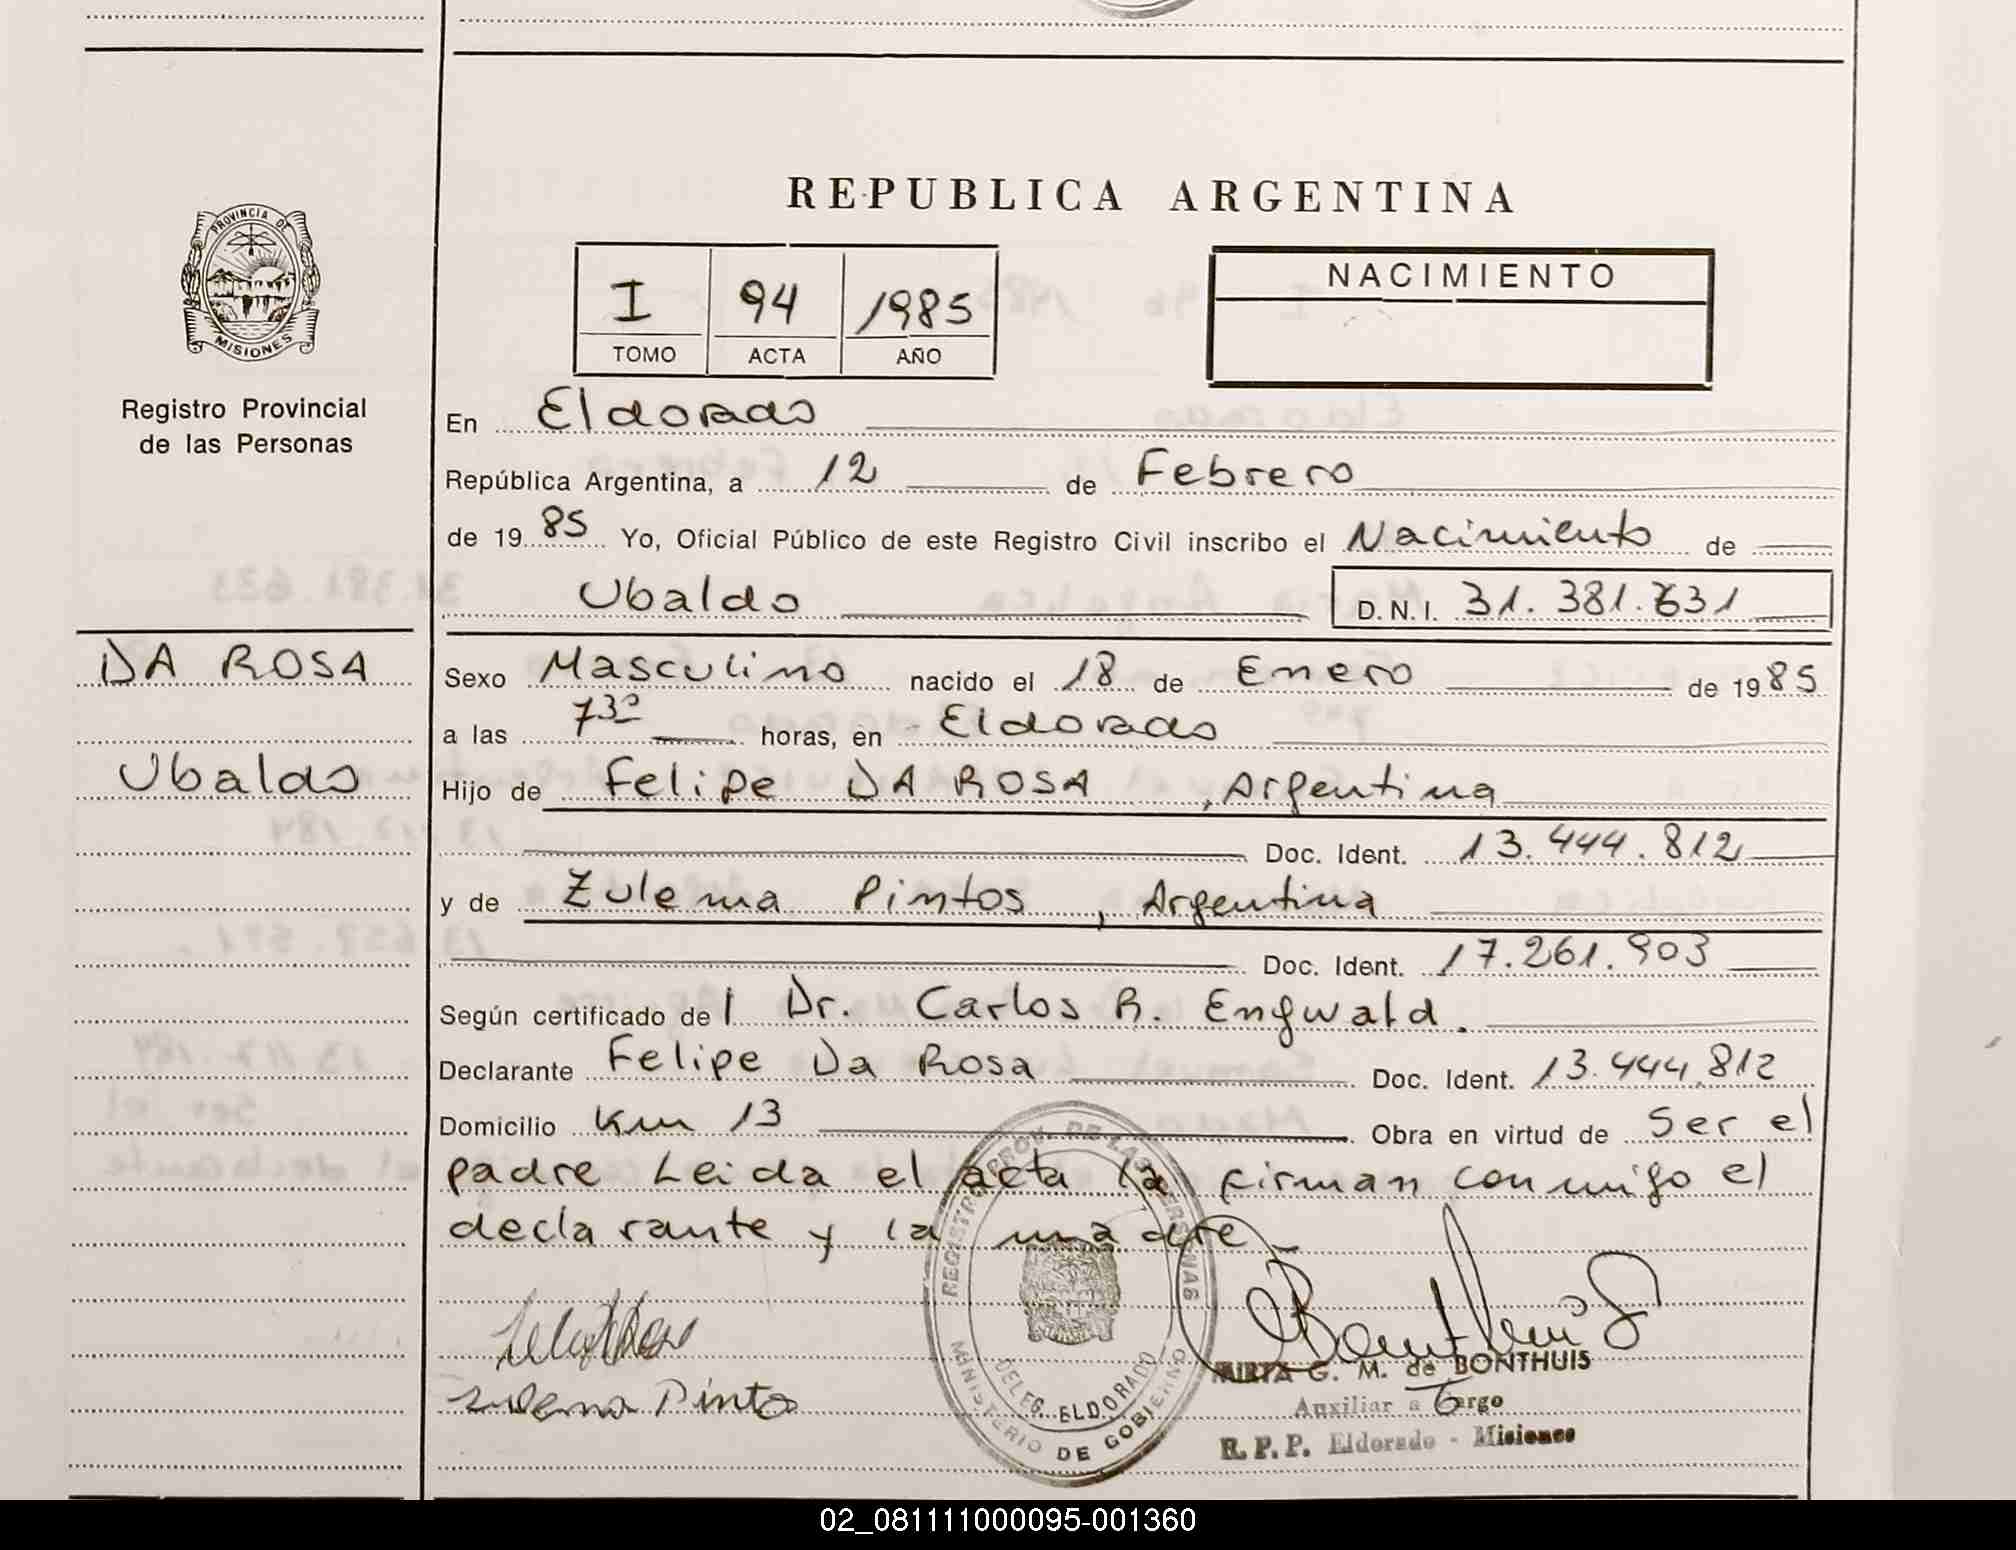 PROVINCIA DE
MISIONES
Registro Provincial
de las Personas
DA ROSA
Ubaldo
REPUBLICA ARGENTINA
I 94 1985
TOMO ACTA AÑO
NACIMIENTO
En Eldorado
República Argentina, a 12 de Febrero
de 1985 Yo, Oficial Público de este Registro Civil inscribo el Nacimiento de
Ubaldo D.N.I. 31.381.631
Sexo Masculino nacido el 18 de Enero de 1985
a las 7³⁰ horas, en Eldorado
Hijo de Felipe DA ROSA, Argentina
Doc. Ident. 13.444.812
y de Zulema Pintos, Argentina
Doc. Ident. 17.261.903
Según certificado de l Dr. Carlos R. Engwald.
Declarante Felipe Da Rosa Doc. Ident. 13.444.812
Domicilio Km 13 Obra en virtud de Ser el
padre Leida el acta la firman conmigo el
declarante y la madre
REGISTRO PROV. DE LAS PERSONAS
DELEG. ELDORADO
MINISTERIO DE GOBIERNO
Zulema Pinto
MIRTA G. M. de BONTHUIS
Auxiliar a Cargo
R.P.P. Eldorado - Misiones
02_081111000095-001360